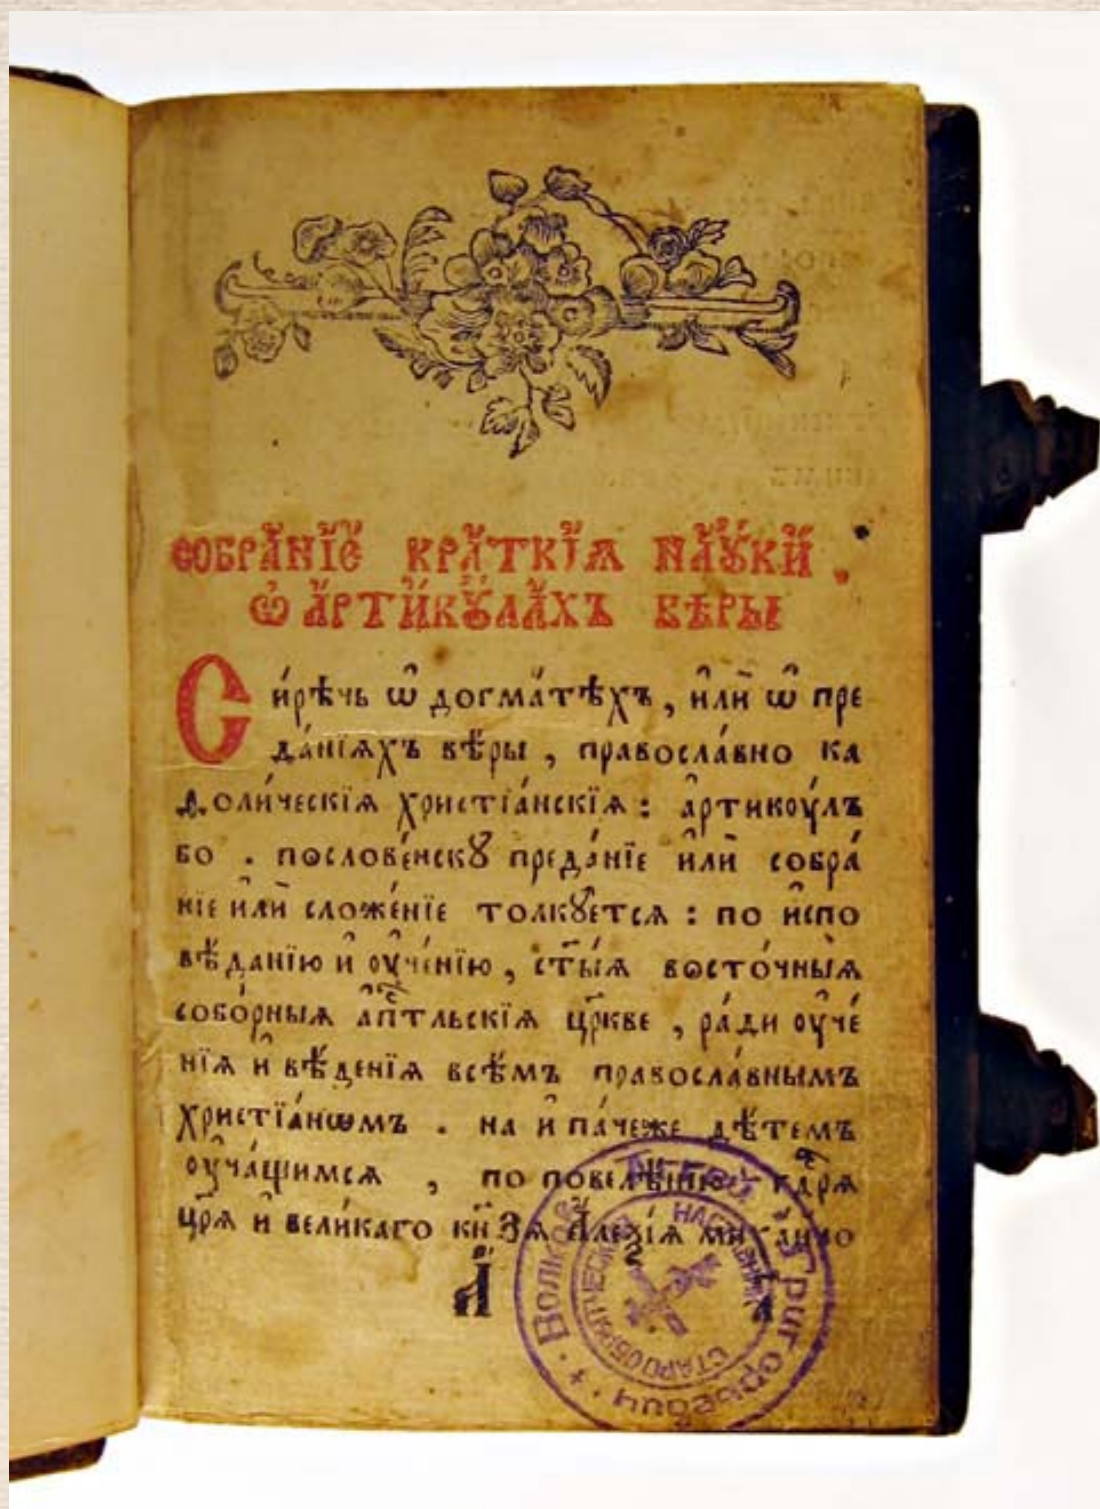 СОБРА́НЇЕ КРА́ТКЇѦ НАꙊ́КИ.
Ѽ А҆РТИ́КꙊЛАХЪ ВѢРЫ
Си́рѣчь ѽ догма́тѣхъ, и҆лѝ ѽ пре
да́нїѧхъ вѣ́ры, правосла́вно ка
ѳоли́ческїѧ христїа́нскїѧ: а҆ртикоу́лъ
бо. пословѐнскꙋ преда́нїе и҆лѝ собра́
нїе и҆лѝ сложе́нїе толкꙋ́етсѧ: по и҆спо
вѣ́данїю и҆ оу҆че́нїю, ст҃ы́ѧ восто́чныѧ
собо́рныѧ а҆пⷭ҇тльскїѧ цр҃кве, ра́ди оу҆че́
нїѧ и҆ вѣ́денїѧ всѣ́мъ правосла́внымъ
христїа́нѡмъ. на и҆ па́чеже дѣ́темъ
оу҆ча́щимсѧ, по повелѣ́нїю гд҃рѧ
цр҃ѧ и҆ вели́каго кн҃зѧ А҆леѯі́ѧ миха́ило
а҃
Волков Григорьевич
СТАРООБРЯДЧЕСКИЙ НАСТАВНИК